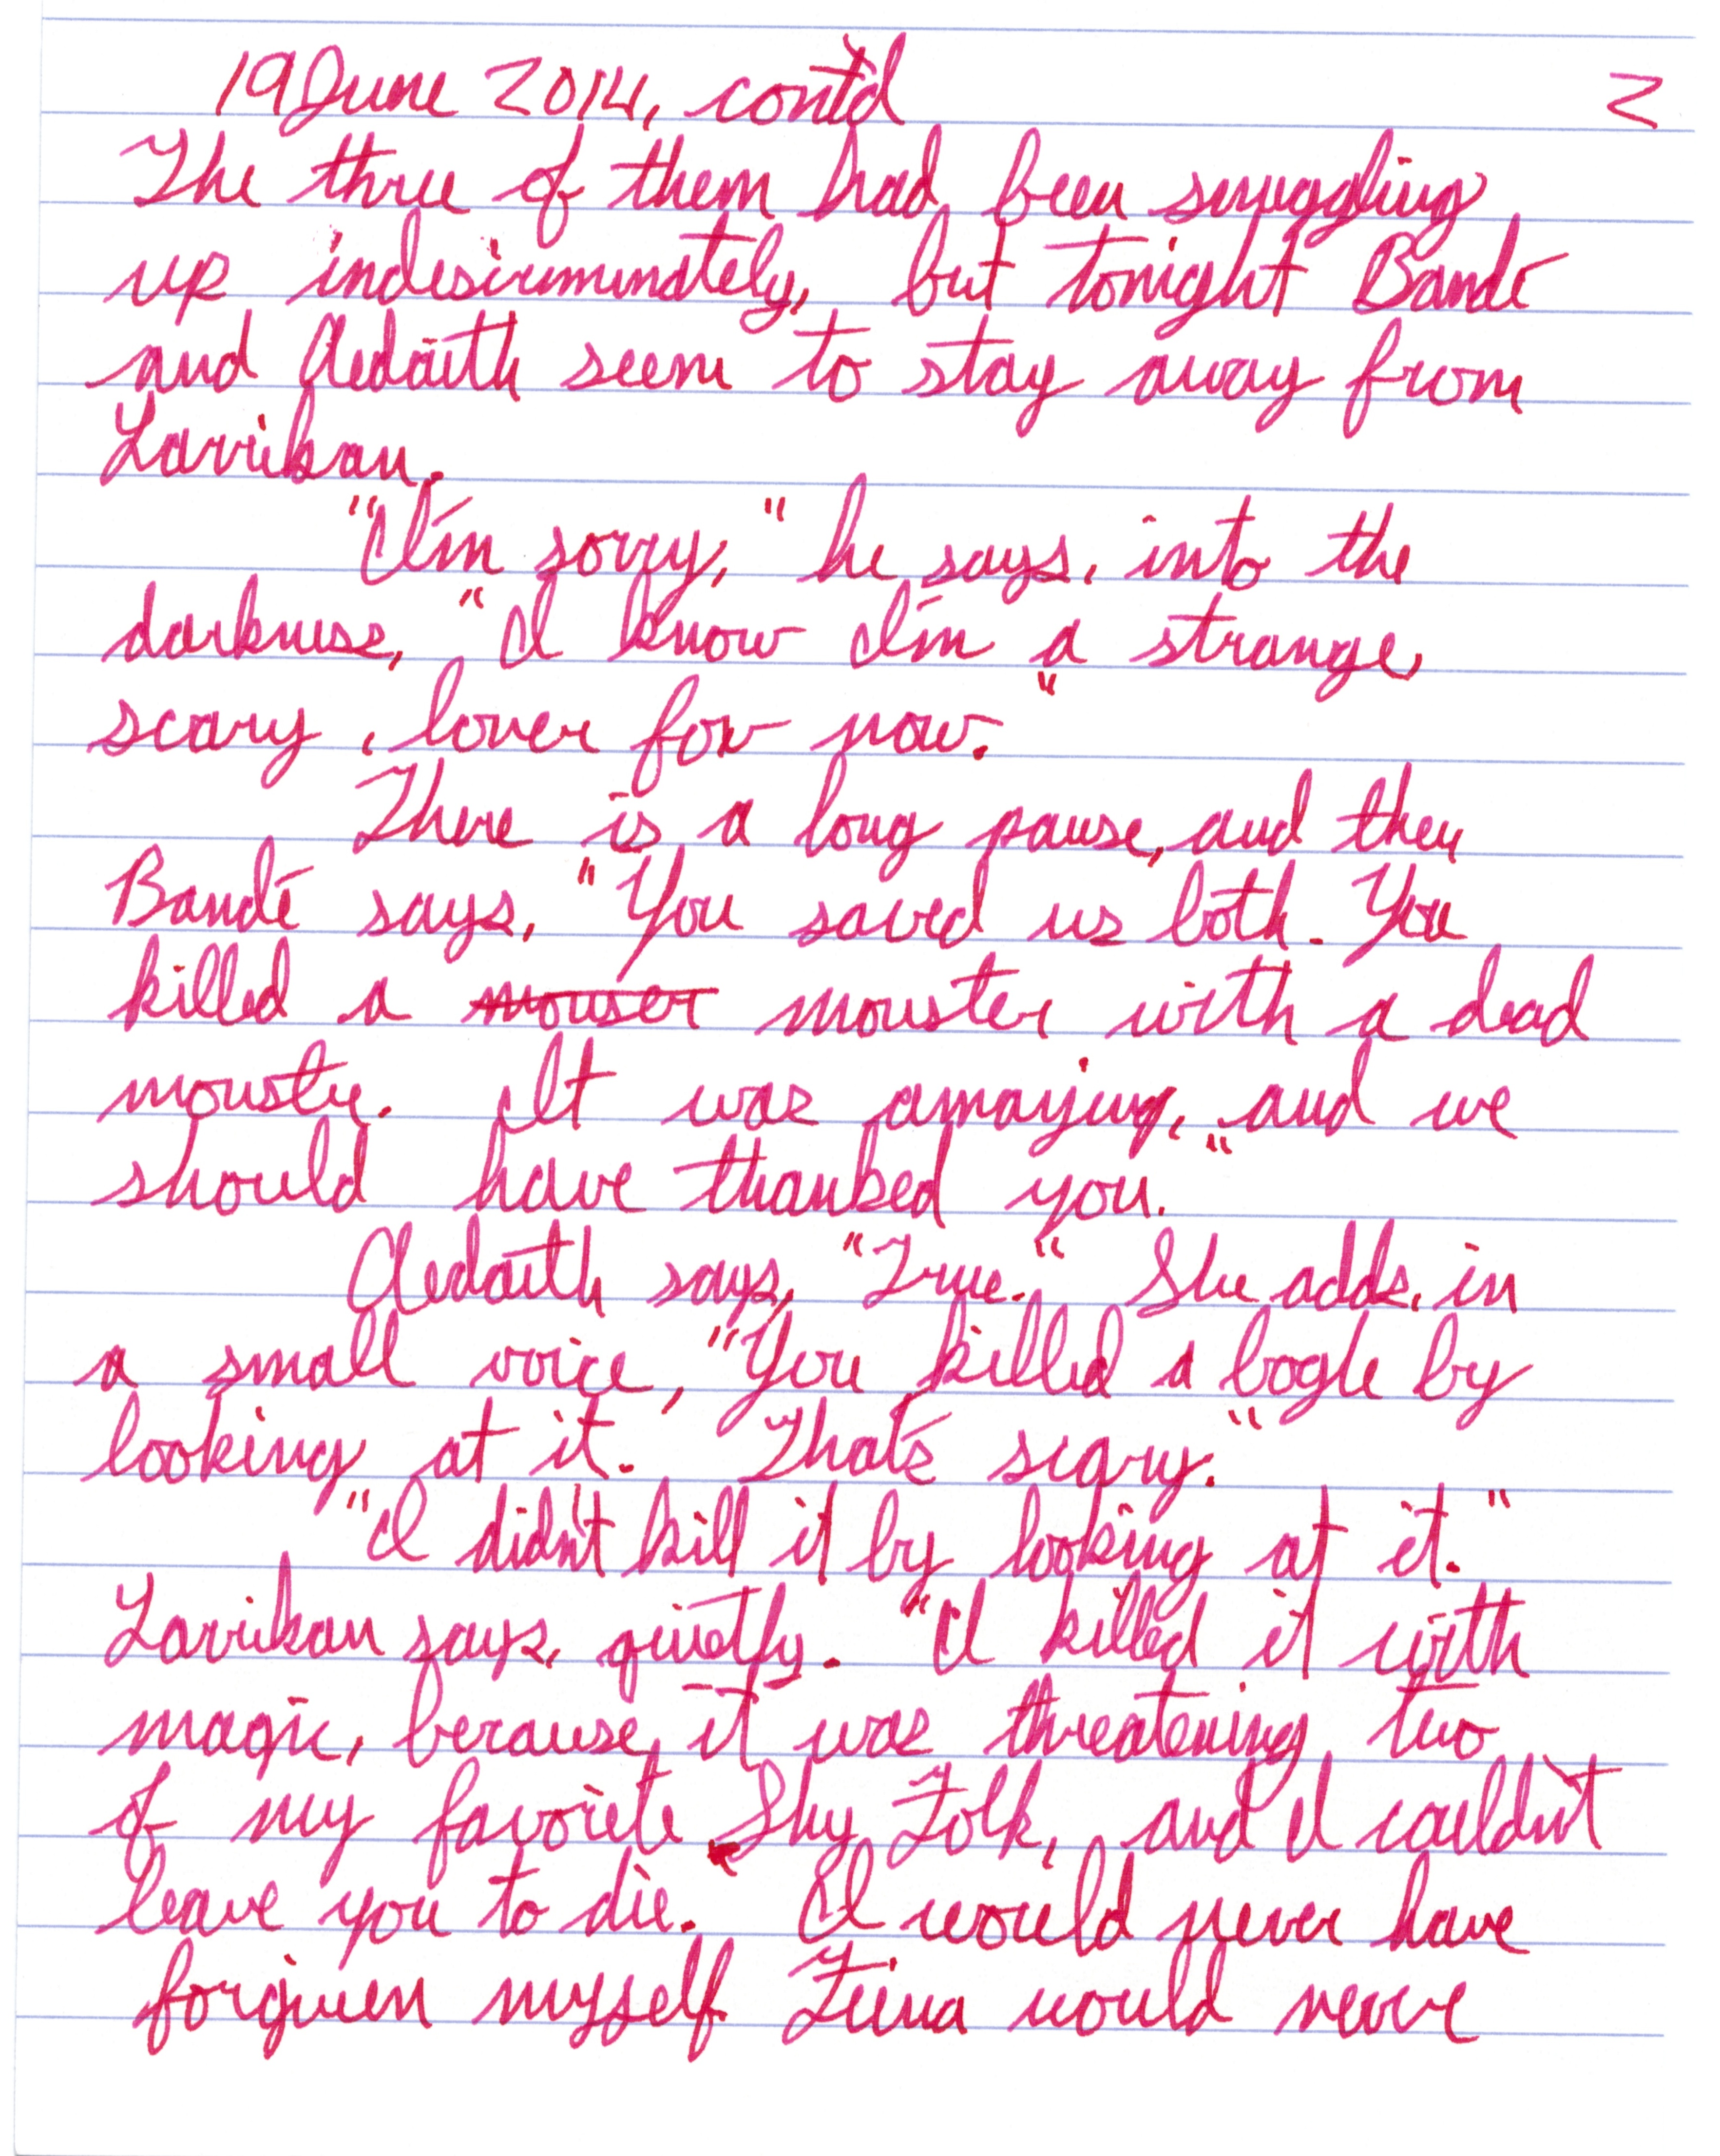 19 June 2014, cont'd 2
The three of them had been snuggling
up indiscriminately, but tonight Bandé
and Aedaith seem to stay away from
Larrikan.
"I'm sorry," he says, into the
darkness, "I know I'm a strange,
scary, lover for now."
There is a long pause, and then
Bandé says, "You saved us both. You
killed a monster with a dead
monster. It was amazing, and we
should have thanked you."
Aedaith says, "True." She adds, in
a small voice, "You killed a bogle by
looking at it. That's scary."
"I didn't kill it by looking at it."
Larrikan says, quietly. "I killed it with
magic, because it was threatening two
of my favorite Shy Folk, and I couldn't
leave you to die. I would never have
forgiven myself. would never